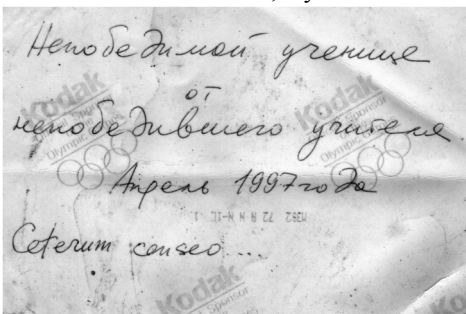 Непобедимой ученице
от
непобедившего учителя.
Апрель 1997 года
Ceterum censeo...
Kodak
Olympic
Sponsor
Kodak
Olympic
Sponsor
Kodak
Sponsor